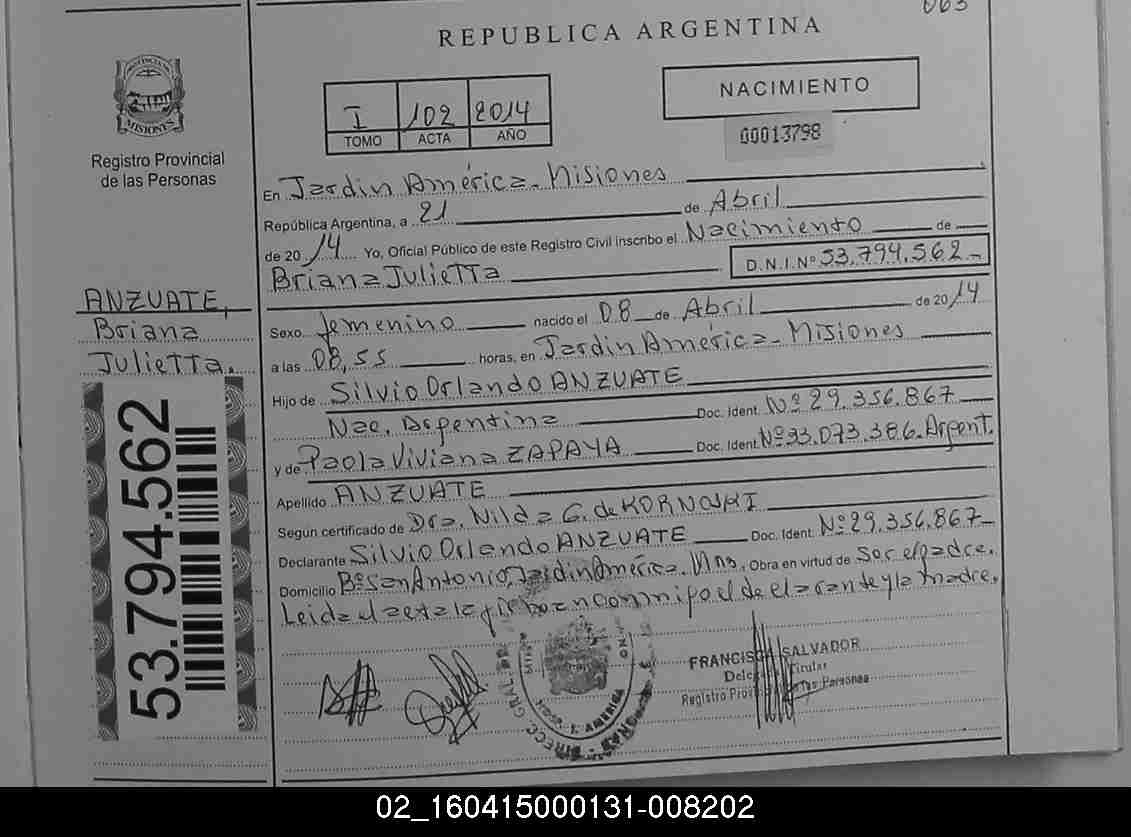 063
REPUBLICA ARGENTINA
PROVINCIA DE
MISIONES
Registro Provincial
de las Personas
I 102 2014
TOMO ACTA AÑO
NACIMIENTO
00013798
En Jardin América - Misiones
República Argentina, a 21 de Abril
de 2014 Yo, Oficial Público de este Registro Civil inscribo el Nacimiento de
Briana Julietta D.N.I.Nº 53.794.562-
ANZUATE,
Briana
Julietta.
53.794.562
Sexo femenino nacido el 08 de Abril de 2014
a las 08,55 horas, en Jardin América - Misiones
Hijo de Silvio Orlando ANZUATE
Nac. Argentina Doc. Ident. Nº 29.356.867
y de Paola Viviana ZAPAYA Doc. Ident. Nº 33.073.386. Argent.
Apellido ANZUATE
Según certificado de Dra. Nilda G. de KORNOSKI
Declarante Silvio Orlando ANZUATE Doc. Ident. Nº 29.356.867
Domicilio Bº San Antonio, Jardin América. Mns. Obra en virtud de Ser el padre.
Leida el acta la firman conmigo el declarante y la madre.
FRANCISCA SALVADOR
Titular
Registro Personas
AMERICA
02_160415000131-008202